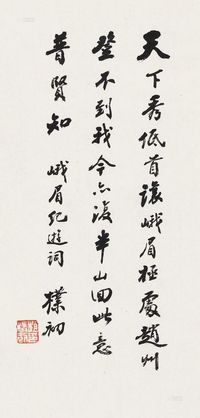 天下秀低首让峨眉极处赵州
登不到我今亦复半山回此意
普贤知　峨眉纪游词　朴初